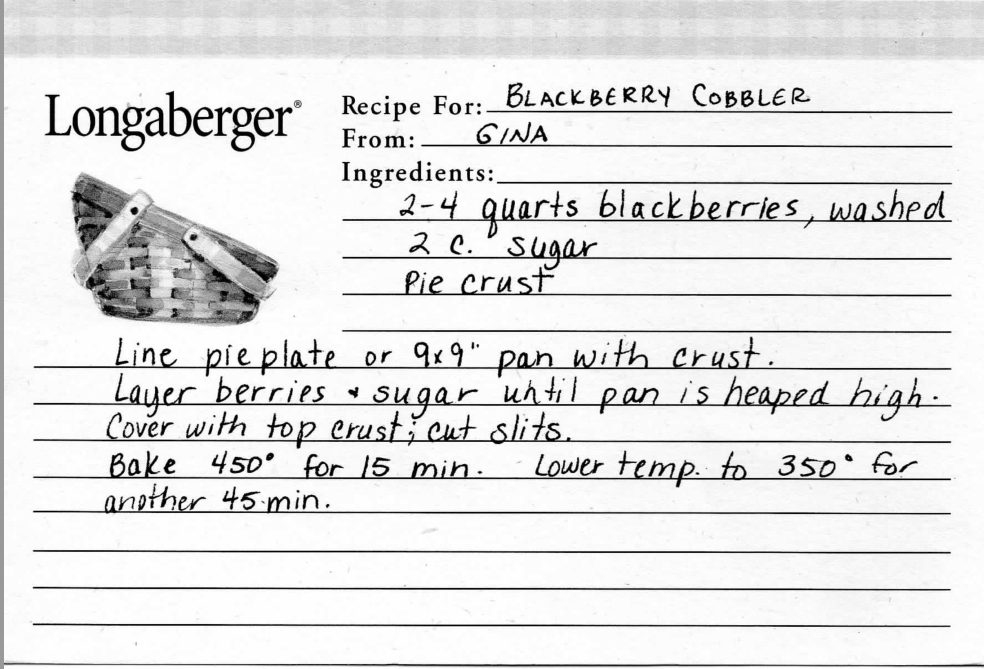 Longaberger®
Recipe For: BLACKBERRY COBBLER
From: GINA
Ingredients:
2-4 quarts blackberries, washed
2 c. sugar
Pie crust
Line pie plate or 9x9" pan with crust.
Layer berries & sugar until pan is heaped high.
Cover with top crust; cut slits.
Bake 450° for 15 min. Lower temp. to 350° for
another 45 min.